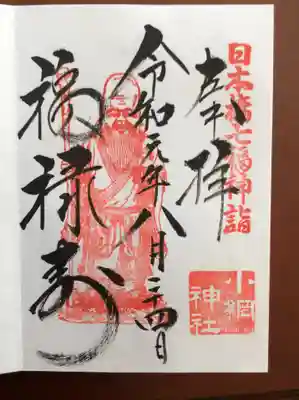 日本橋七福神詣
奉拝
小網
神社
令和元年八月二四日
福禄寿